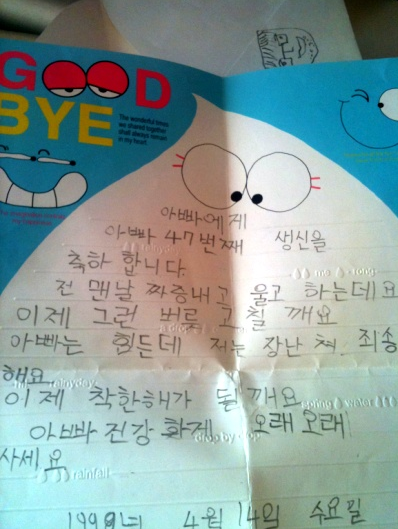 GOOD
BYE
The wonderful times
we shared together
shall always remain
in my heart
아빠에게
아빠 47번째 생신을
축하 합니다.
전 맨날 짜증내고 울고 하는데요
이제 그런 버르 고칠 깨요
아빠는 힘든데 저는 장난 쳐 죄송
해요
이제 착한해가 될 깨요
아빠 건강 화게 오래오래
사세요
rainfall
1999년 4월 14일 수요일